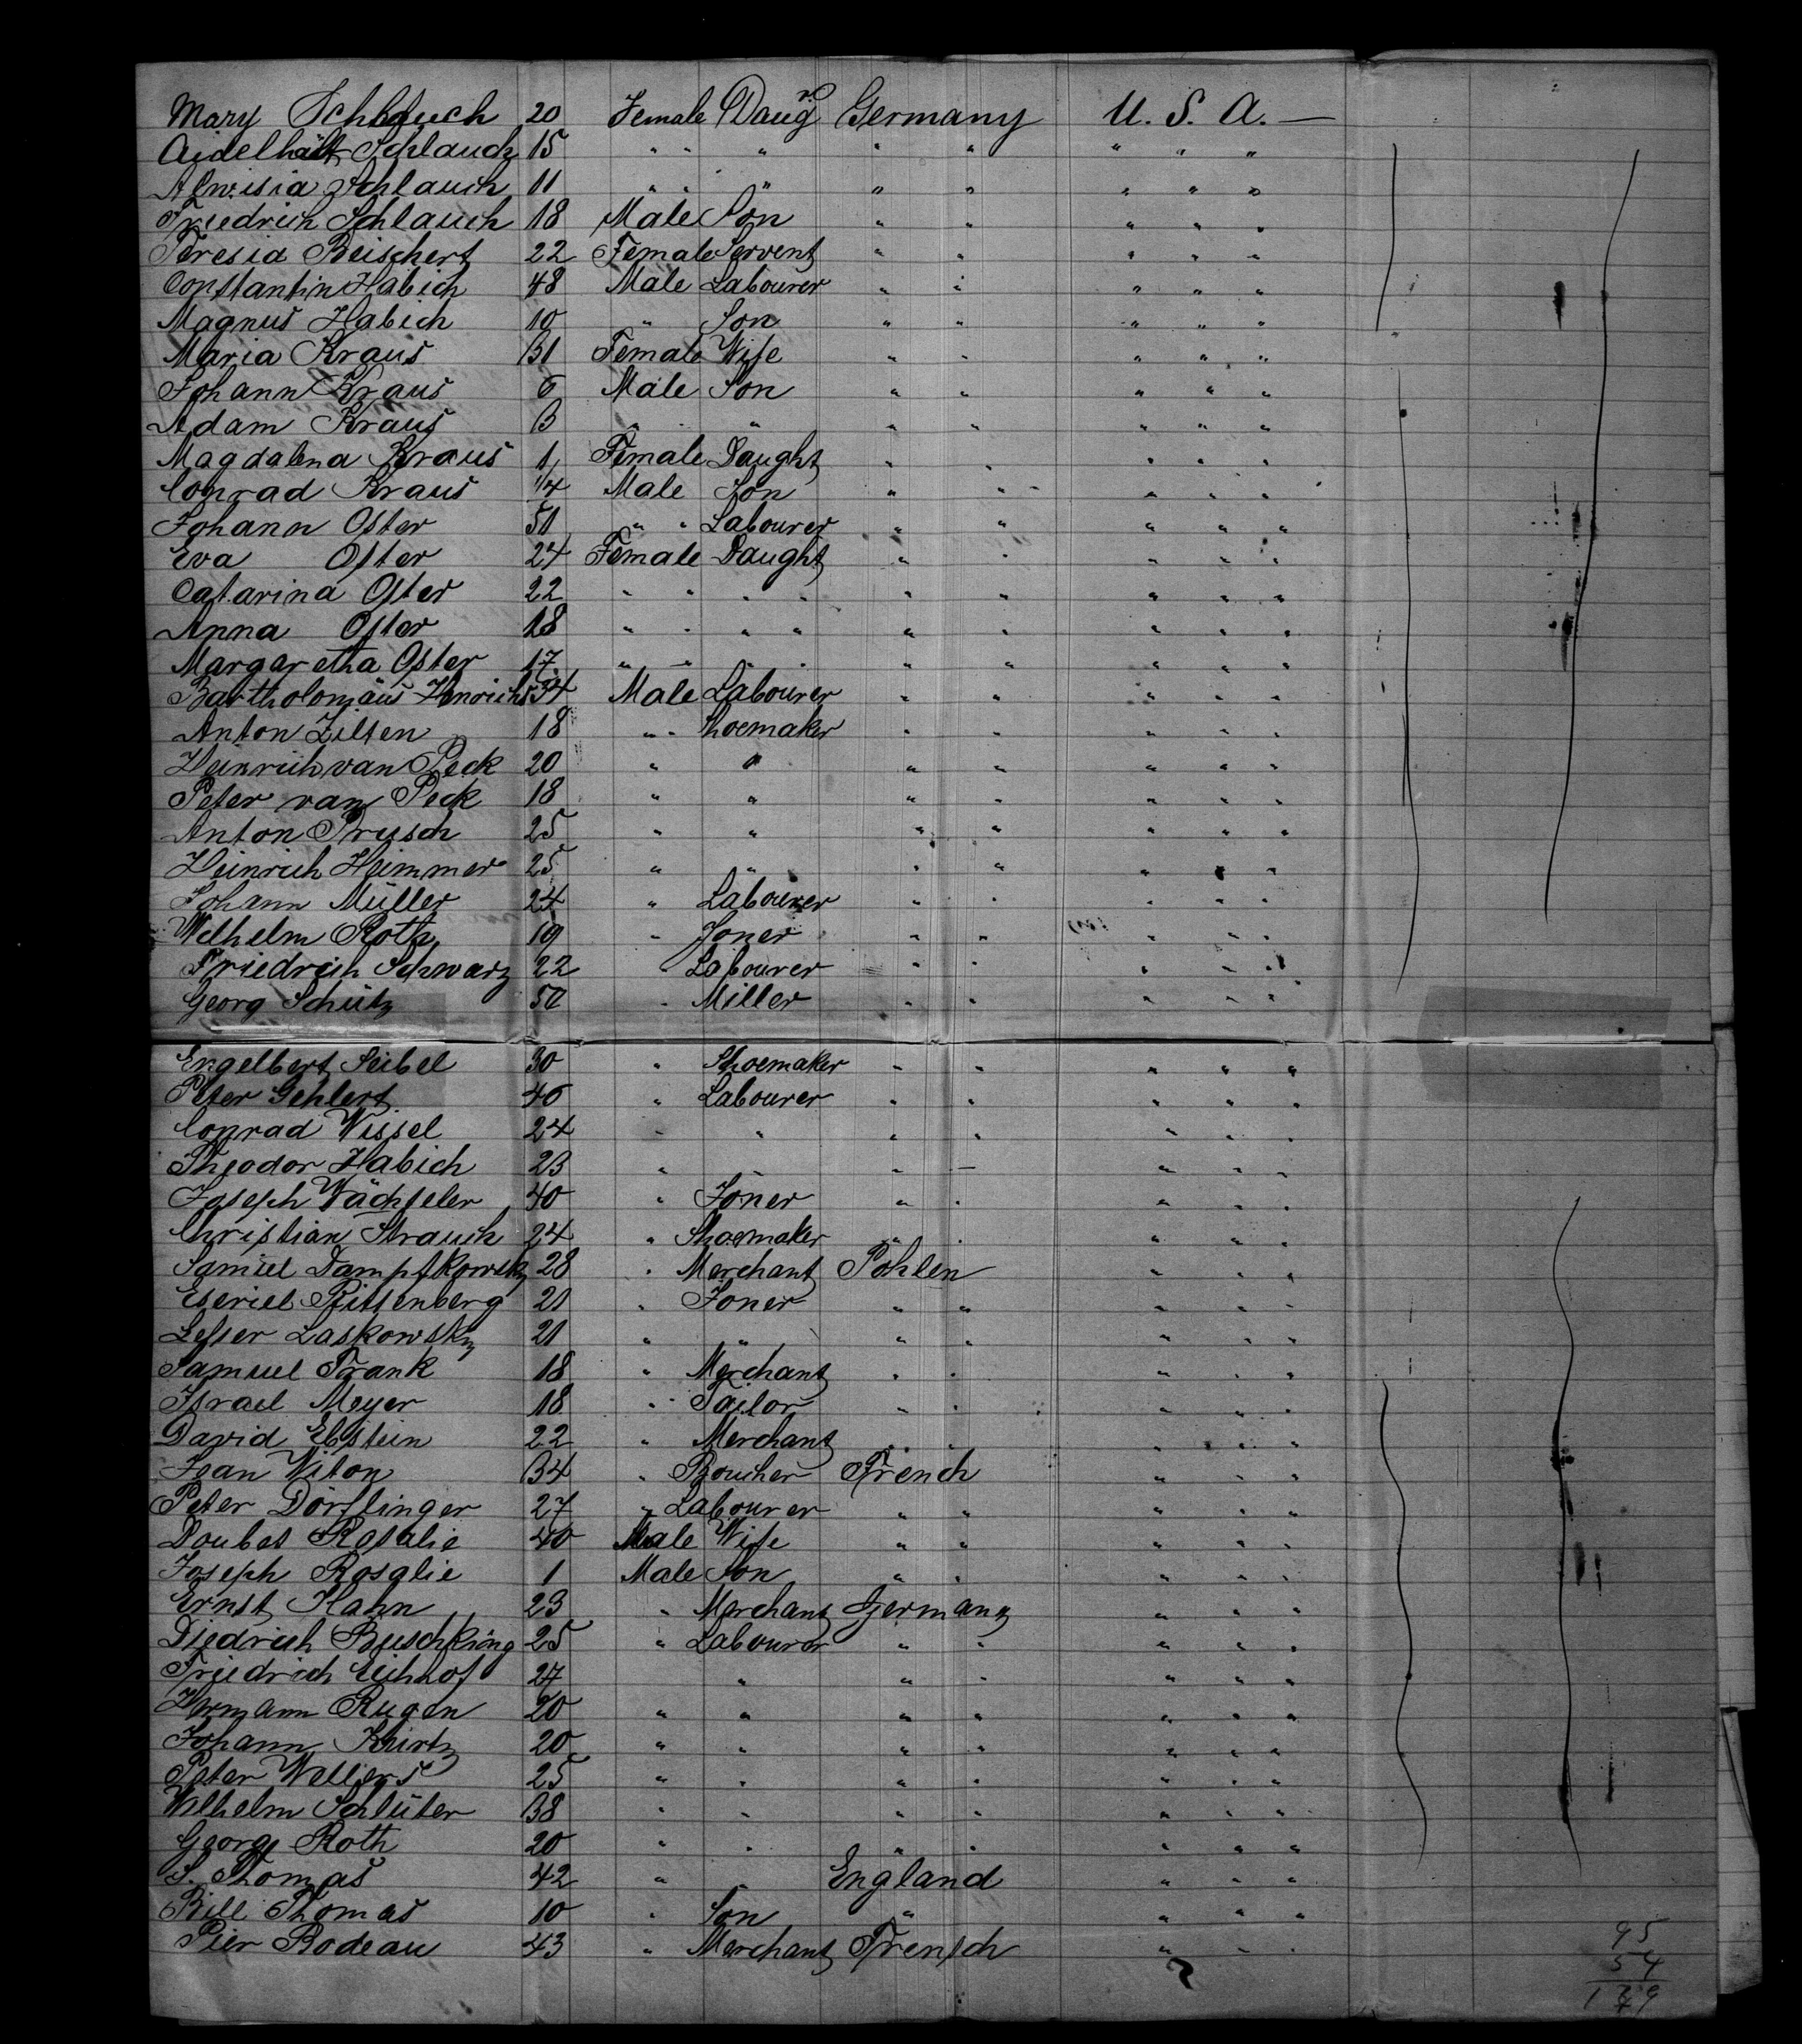 Mary Schlauch 20 Female Daug Germany U. S. A. —
Aidelhait Schlauch 15 " " " " " " " "
Alwisia Schlauch 11 " " " " " " " "
Friedrich Schlauch 18 Male Son " " " " "
Teresia Beischert 22 Female Servent " " " " "
Constantin Habich 48 Male Labourer " " " " "
Magnus Habich 10 " Son " " " " "
Maria Kraus 31 Female Wife " " " " "
Johann Kraus 6 Male Son " " " " "
Adam Kraus 3 " " " " " " " "
Magdalena Kraus 1 Female Daught " " " " "
Conrad Kraus 1/4 Male Son " " " " "
Johann Oster 51 " " Labourer " " " " "
Eva Oster 24 Female Daught " " " " "
Catarina Oster 22 " " " " " " " " "
Anna Oster 18 " " " " " " " " "
Margaretha Oster 17 " " " " " " " " "
Bartholomäus Henrichs 34 Male Labourer " " " " "
Anton Zilten 18 " " Shoemaker " " " " "
Heinrich van Peck 20 " " " " " " "
Peter van Peck 18 " " " " " " "
Anton Prusch 25 " " " " " " "
Heinrich Heimmer 25 " " " " " " "
Johann Müller 24 " Labourer " " " " "
Welhelm Roth 19 " Joner " " " " "
Friedrich Schwarz 22 " Labourer " " " " "
Georg Schütz 50 " Miller " " " " "
Engelbert Seibel 30 " Shoemaker " " " " "
Peter Gehlert 46 " Labourer " " " " "
Conrad Wissel 24 " " " " " " "
Theodor Habich 23 " " " " " " "
Joseph Wächteler 40 " Joner " " " " "
Christian Strauch 24 " Shoemaker " " " " "
Samuel Dampfkowsky 28 " Merchant Pohlen " " "
Eseriel Rittenberg 21 " Joner " " " " "
Lesser Laskowsky 21 " " " " " " "
Samuel Frank 18 " Merchant " " " " "
Israel Meyer 18 " Tailor " " " " "
David Ebstein 22 " Merchant " " " " "
Jean Witon 34 " Boucher French " " "
Peter Dörflinger 27 " Labourer " " " " "
Doubet Rosalie 40 Male Wife " " " " "
Joseph Rosalie 1 Male Son " " " " "
Ernst Hahn 23 " Merchant Germany " " "
Diedrich Buschking 25 " Labourer " " " " "
Friedrich Eichhof 27 " " " " " "
Hermann Rugen 20 " " " " " " "
Johann Kürtz 20 " " " " " " "
Peter Wellers 25 " " " " " " "
Wilhelm Schlüter 38 " " " " " " "
George Roth 20 " " " " " " "
S. Thomas 42 " " England " " "
Bill Thomas 10 " Son " " " "
Pier Rodeau 43 " Merchant French " " "
95
54
149